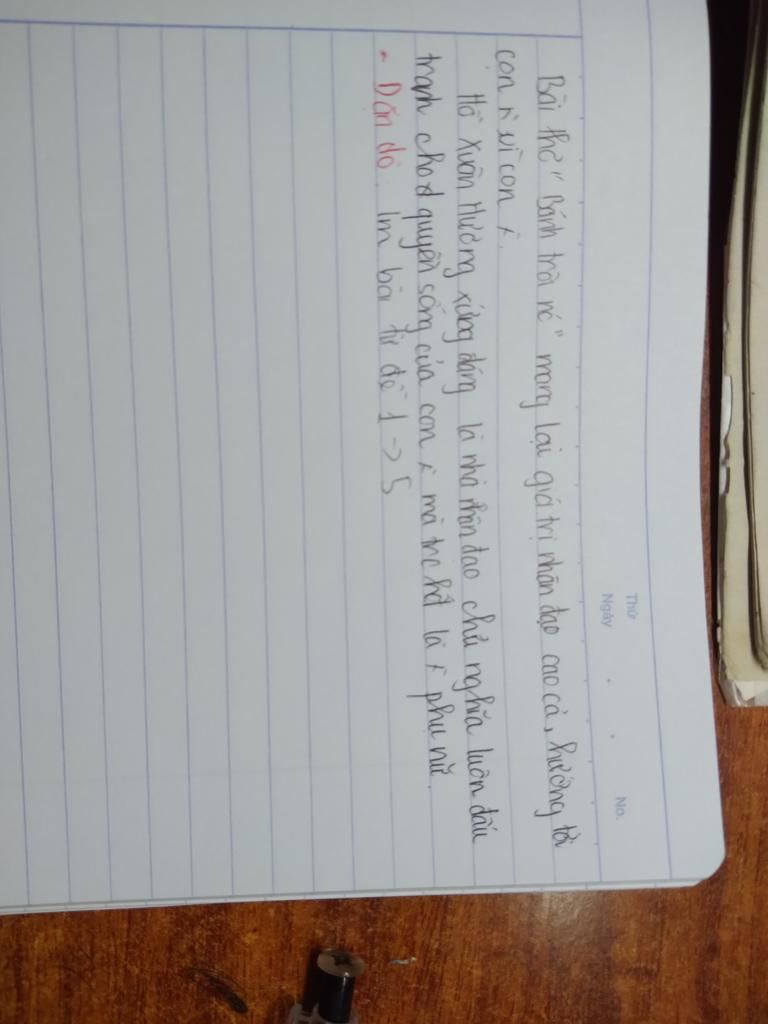 Thứ
Ngày
No.
Bài thơ "Bánh trôi nc" mang lại giá trị nhân đạo cao cả, hướng tới
con ng` vì con ng`.
Hồ Xuân Hương xứng đáng là nhà nhân đạo chủ nghĩa luôn đấu
tranh cho quyền sống của con ng` mà trc hết là ng` phụ nữ.
- Dặn dò. lm bài từ đề 1 -> 5